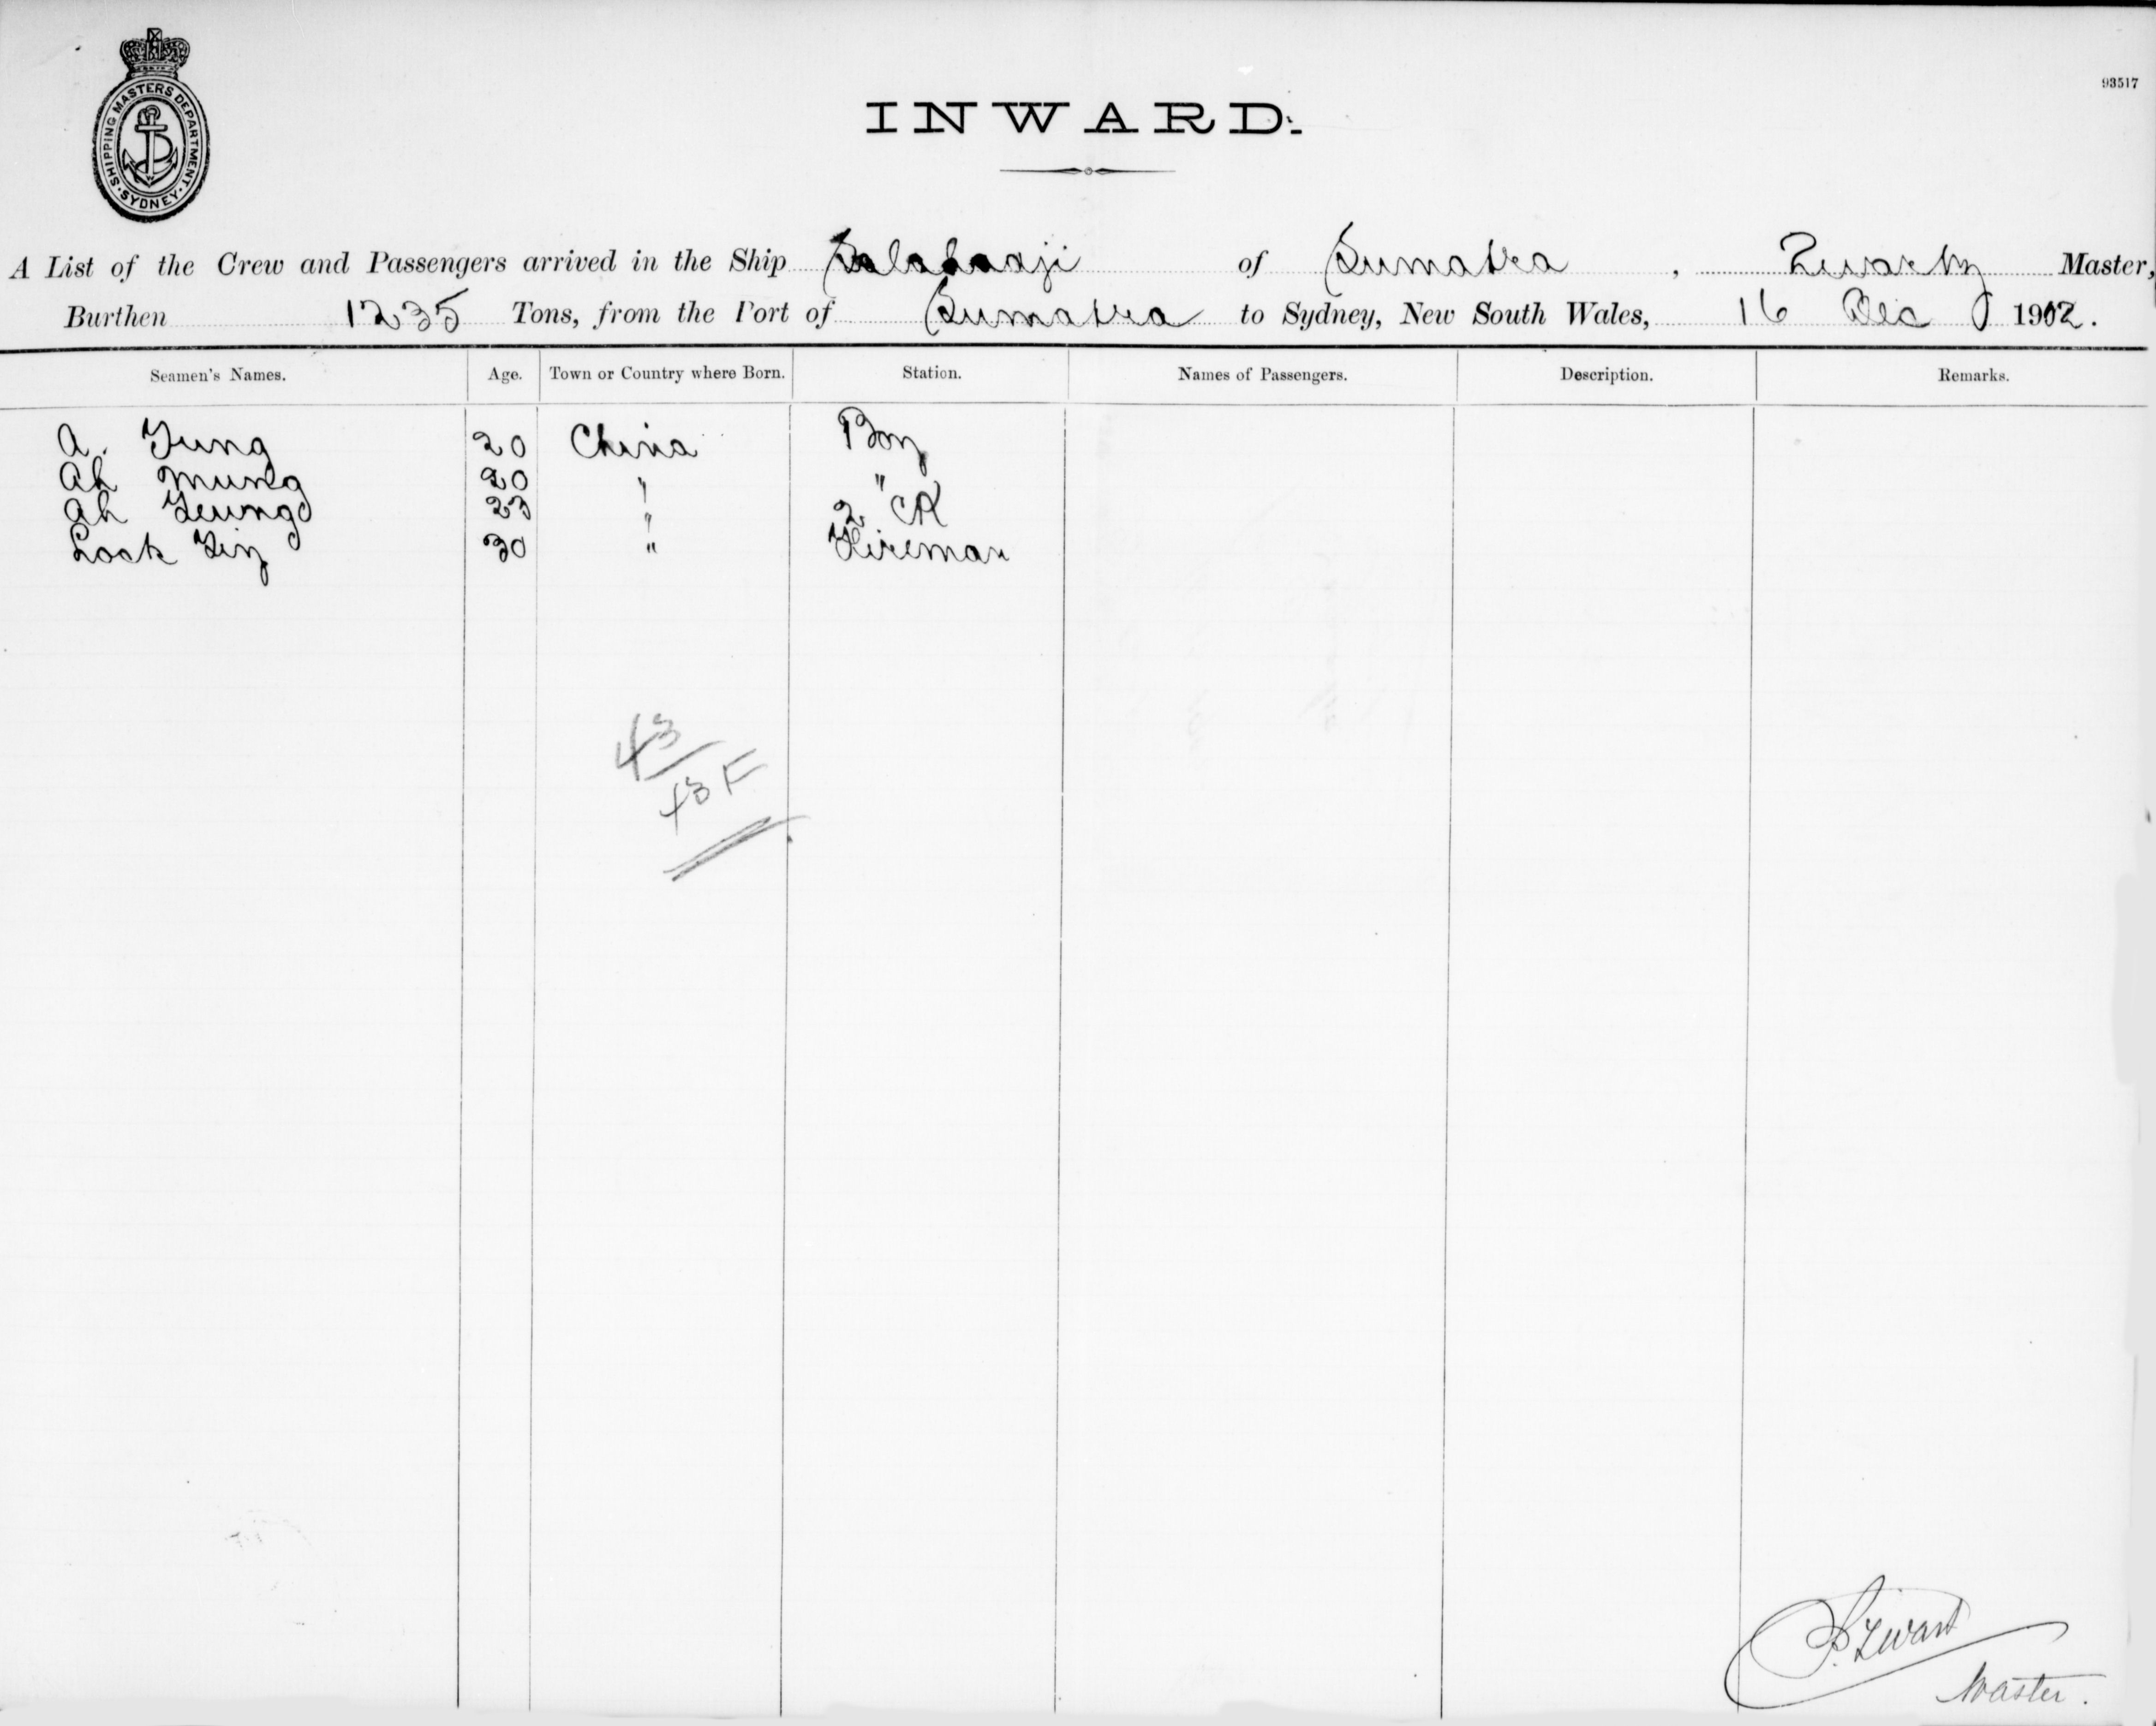 SHIPPING MASTERS DEPARTMENT · SYDNEY ·
93517
INWARD.
A List of the Crew and Passengers arrived in the Ship of Sumatra , Master,
Burthen 1235 Tons, from the Port of Sumatra to Sydney, New South Wales, 16 Dec 1902.
Seamen's Names. Age. Town or Country where Born. Station. Names of Passengers. Description. Remarks.
A. Yung 20 China Boy
Ah Mung 20 " "
Ah Yeung 23 " 2 CK
Lock 30 " Fireman
43
43 F
Zwart
Master.